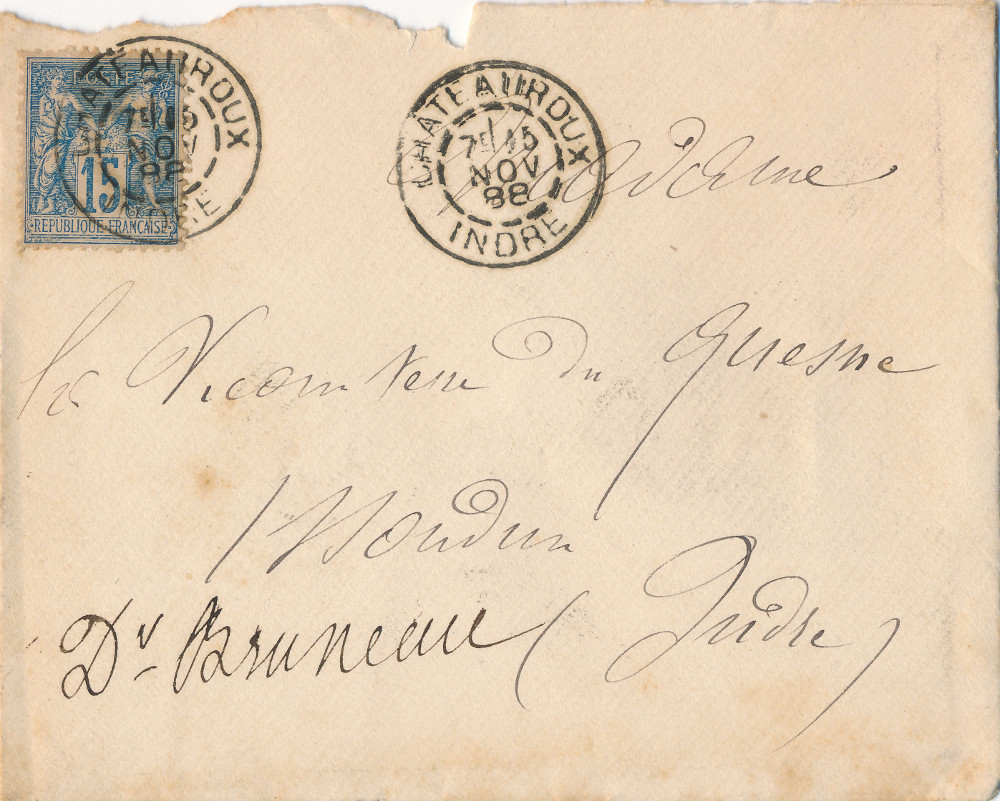 POSTE
15
REPUBLIQUE FRANÇAISE
CHATEAUROUX
7E 15
NOV
88
INDRE
CHATEAUROUX
7E 15
NOV
88
INDRE
Madame
la Vicomtesse du Quesne
Issoudun
Dr Bruneau (Indre)